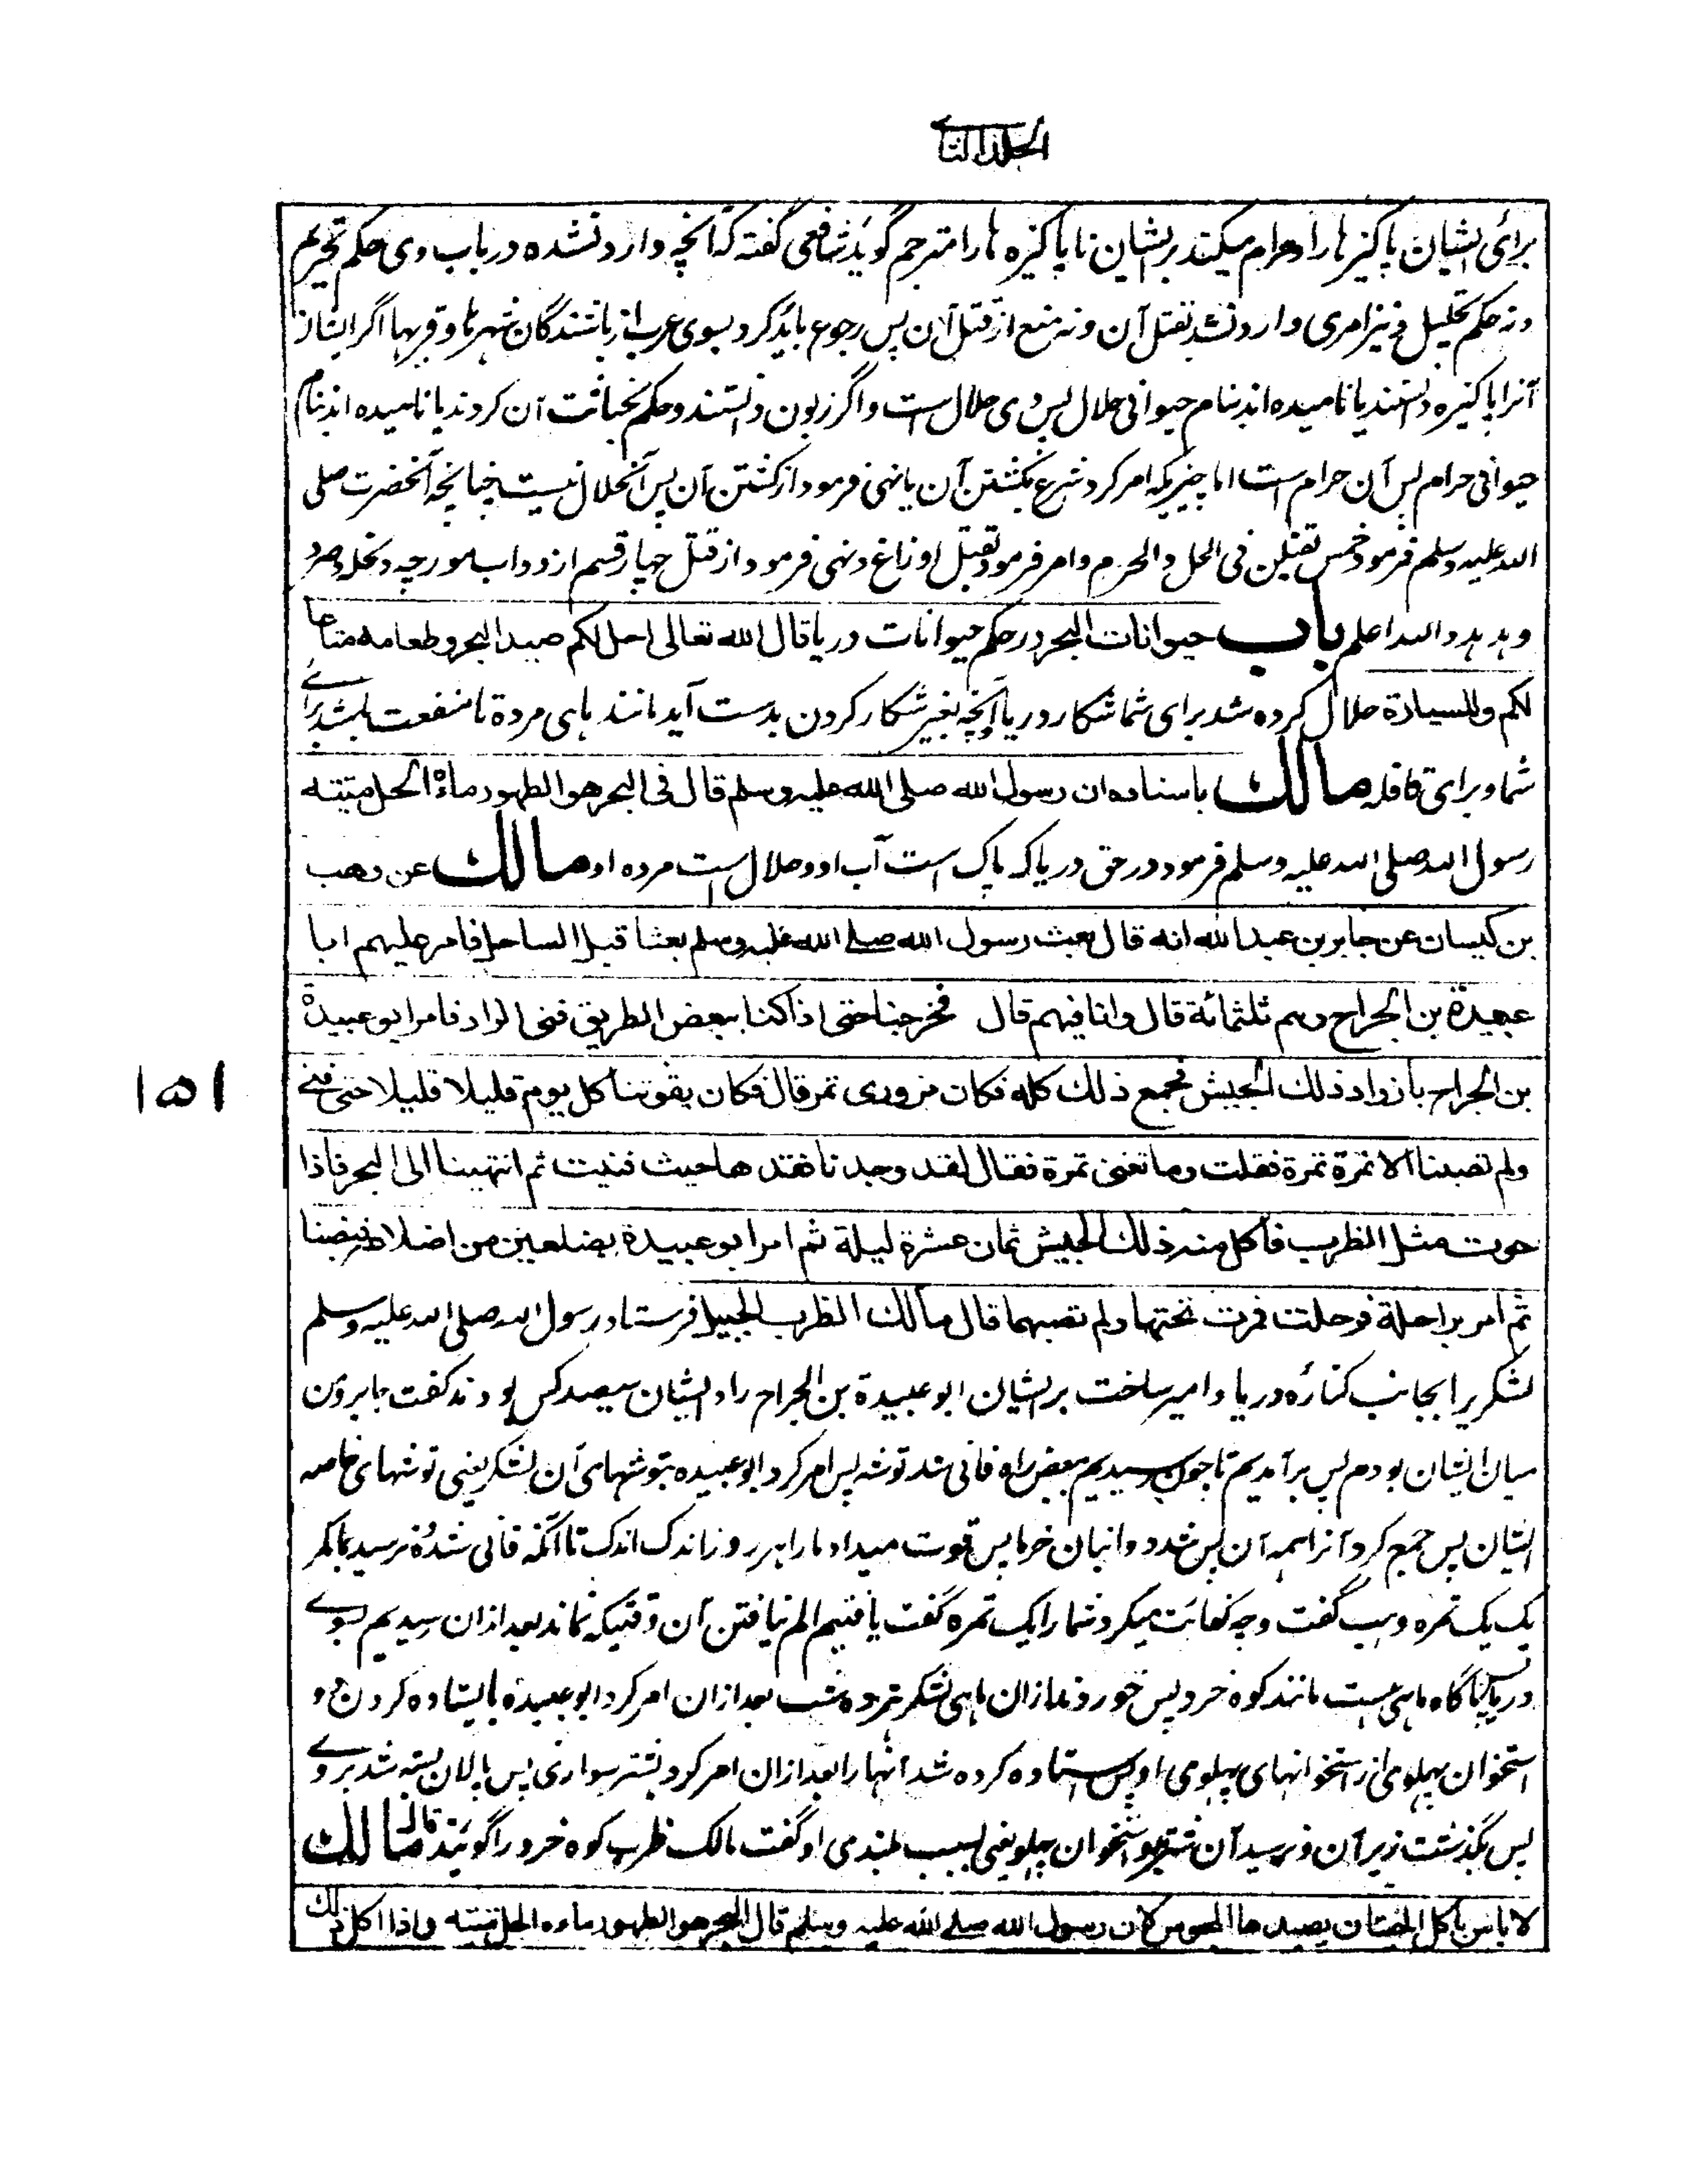 الجلد الثانے
برائ ایشان پاکیزہ ہا را و حرام میکند بر ایشان ناپاکیزہ ہا را مترجم گوید شافعی گفتہ کہ آنچہ وارد نشدہ در باب وی حکم تحریم
و نہ حکم تحلیل و نیز امری وارد نشد بقتل آن و نہ منع از قتل آن پس رجوع باید کرد بسوی عرب از باشندگان شہرہا و قریہا اگر ایشان
آنرا پاکیزہ دانستند یا نامیدہ اند بنام حیوانی حلال پس وی حلال است و اگر زبون دانستند و حکم بخباثت آن کردند یا نامیدہ اند بنام
حیوانی حرام پس آن حرام است اما چیزیکہ امر کرد شرع بکشتن آن یا نہی فرمود از کشتن آن پس آن حلال نیست چنانچہ آنحضرت صلی
اللہ علیہ وسلم فرمود خمس یقتلن فی الحل والحرم و امر فرمود بقتل اوزاغ و نہی فرمود از قتل چہار قسم از دواب مورچہ و نحلہ و صرد
و ہدہد واللہ اعلم باب حیوانات البحر در حکم حیوانات دریا قال الله تعالی احل لکم صید البحر وطعامه متاعا
لکم وللسیارة حلال کردہ شد برای شما شکار دریا و آنچہ بغیر شکار کردن بدست آید مانند ماہی مردہ تا منفعت باشد براے
شما و برای قافلہ مالك باسناده ان رسول الله صلی الله علیه وسلم قال فی البحر هو الطهور ماؤه الحل میتته
رسول اللہ صلی اللہ علیہ وسلم فرمود در حق دریا کہ پاک است آب او و حلال است مردہ او مالك عن وهب
بن کیسان عن جابر بن عبد الله انه قال بعث رسول الله صلے الله علیه وسلم بعثا قبل الساحل فامر علیهم ابا
عبیدة بن الجراح وهم ثلثمائة قال وانا فیهم قال فخرجنا حتی اذا کنا ببعض الطریق فنی الزاد فامر ابو عبیدة
بن الجراح بازواد ذلك الجیش فجمع ذلك کله فکان مزودی تمر قال فکان یقوتنا کل یوم قلیلا قلیلا حتی فنے
ولم تصبنا الا تمرة تمرة فقلت وما تغنی تمرة فقال لقد وجدنا فقدها حیث فنیت ثم انتهینا الی البحر فاذا
حوت مثل الظرب فاکل منه ذلك الجیش ثمان عشرة لیلة ثم امر ابو عبیدة بضلعین من اضلاعه فنصبنا
ثم امر براحلة فرحلت فمرت تحتها ولم تصبهما قال مالك الظرب الجبیل فرستاد رسول اللہ صلی اللہ علیہ وسلم
لشکریرا بجانب کنارۂ دریا و امیر ساخت بر ایشان ابو عبیدة بن الجراح را و ایشان سیصد کس بودند گفت جابر و من
میان ایشان بودم پس برآمدیم تا چون رسیدیم ببعض راہ فانی شد توشہ پس امر کرد ابو عبیدہ بتوشہای آن لشکر یعنی توشہای خاصہ
ایشان پس جمع کرد آنرا ہمہ آن پس شد دو انبان خرما پس قوت میداد ما را ہر روز اندک اندک تا آنکہ فانی شد و نرسید بما مگر
یک یک تمرہ وہب گفت و چہ کفایت میکرد شما را یک تمرہ گفت یافتیم الم نیافتن آن وقتیکہ نماند بعد ازان رسیدیم بسوے
دریا پس ناگاہ ماہی ہست مانند کوہ خرد پس خوردند ازان ماہی لشکر ہژدہ شب بعد ازان امر کرد ابو عبیدہ بایستادہ کردن دو
استخوان پہلوی از استخوانہای پہلوی او پس استادہ کردہ شد آنہا را بعد ازان امر کرد بشتر سواری پس پالان بستہ شد بروے
پس بگذشت زیر آن و نرسید آن شتر بدو استخوان پہلو یعنی بسبب بلندی او گفت مالک ظرب کوہ خرد را گویند قال مالك
لا باس باکل الحیتان یصیدها المجوس لان رسول الله صلے الله علیه وسلم قال البحر هو الطهور ماءه الحل میتته واذا اکل ذلك
۱۵۱